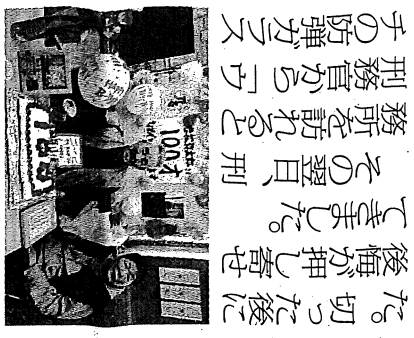 た。切った後に
後悔が押し寄せ
てきました。
その翌日、刑
務所を訪れると
刑務官から「ウ
チの防弾ガラス
100才